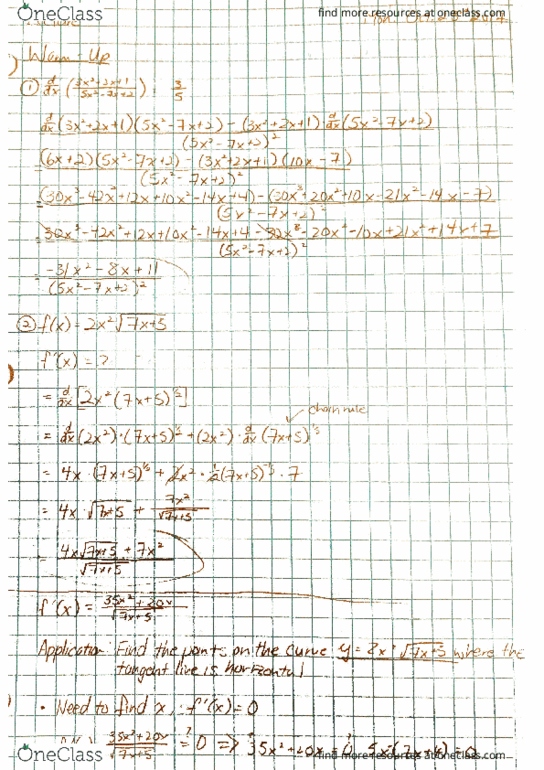 OneClass
find more resources at oneclass.com
Warm-Up
① d/dx (3x²+2x+1 / 5x²-7x+2) 3/5
d/dx (3x²+2x+1)(5x²-7x+2) - (3x²+2x+1) d/dx (5x²-7x+2)
(5x²-7x+2)²
(6x+2)(5x²-7x+2) - (3x²+2x+1)(10x-7)
(5x²-7x+2)²
(30x³-42x²+12x+10x²-14x+4)-(30x³+20x²+10x-21x²-14x-7)
(5x²-7x+2)²
30x³-42x²+12x+10x²-14x+4-30x³-20x²-10x+21x²+14x+7
(5x²-7x+2)²
-31x²-8x+11
(5x²-7x+2)²
② f(x) = 2x²√7x+5
f'(x) = ?
= d/dx [2x²(7x+5)^½]
chain rule
= d/dx (2x²)·(7x+5)^½ + (2x²)· d/dx (7x+5)^½
= 4x·(7x+5)^½ + 2x²·½(7x+5)^-½·7
= 4x·√7x+5 + 7x²/√7x+5
= 4x√7x+5 + 7x²
√7x+5
f'(x) = 35x²+20x / √7x+5
Application: Find the points on the curve y = 2x²√7x+5 where the
tangent line is horizontal
• Need to find x, f'(x)=0
35x²+20x / √7x+5 = 0 => 35x²+20x = 0
OneClass
find more resources at oneclass.com